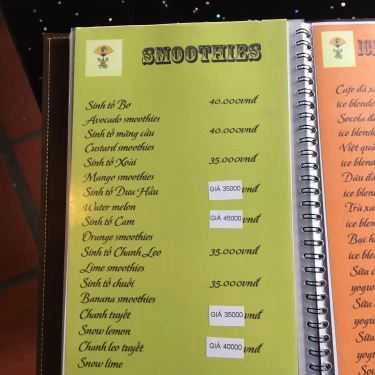 SMOOTHIES
Sinh tố Bơ 40.000vnđ
Avocado smoothies
Sinh tố mãng cầu 40.000vnđ
Custard smoothies
Sinh tố Xoài 35.000vnđ
Mango smoothies
Sinh tố Dưa Hấu GIÁ 35000 vnđ
Water melon
Sinh tố Cam GIÁ 45000 vnđ
Orange smoothies
Sinh tố Chanh Leo 35.000vnđ
Lime smoothies
Sinh tố chuối 35.000vnđ
Banana smoothies
Chanh tuyết GIÁ 35000 vnđ
Snow lemon
Chanh leo tuyết GIÁ 40000 vnđ
Snow lime
Cafe đá x
ice blende
Socola đá
ice blend
Việt quấ
ice blen
Dâu đá
ice blen
Trà xa
ice blen
Bạc h
ice ble
Sữa c
yogu
Sữa
yogu
Sữa
yog
Sữ